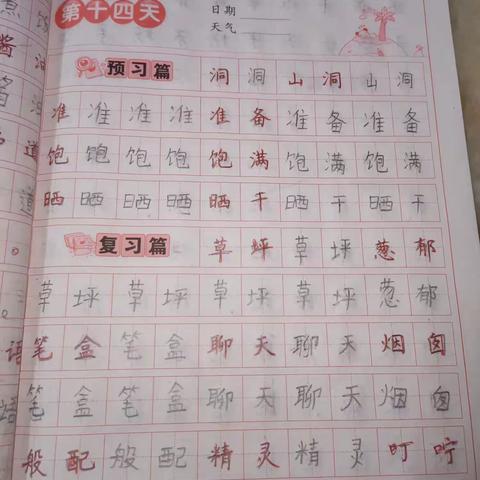 第十四天
日期
天气
预习篇 洞 洞 山 洞 山 洞
准 准 准 准 准 备 准 备 准 备
饱 饱 饱 饱 饱 满 饱 满 饱 满
晒 晒 晒 晒 晒 干 晒 干 晒 干
复习篇 草 坪 草 坪 葱 郁
草 坪 草 坪 草 坪 草 坪 葱 郁
笔 盒 笔 盒 聊 天 聊 天 烟 囱
笔 盒 笔 盒 聊 天 聊 天 烟 囱
般 配 般 配 精 灵 精 灵 叮 咛